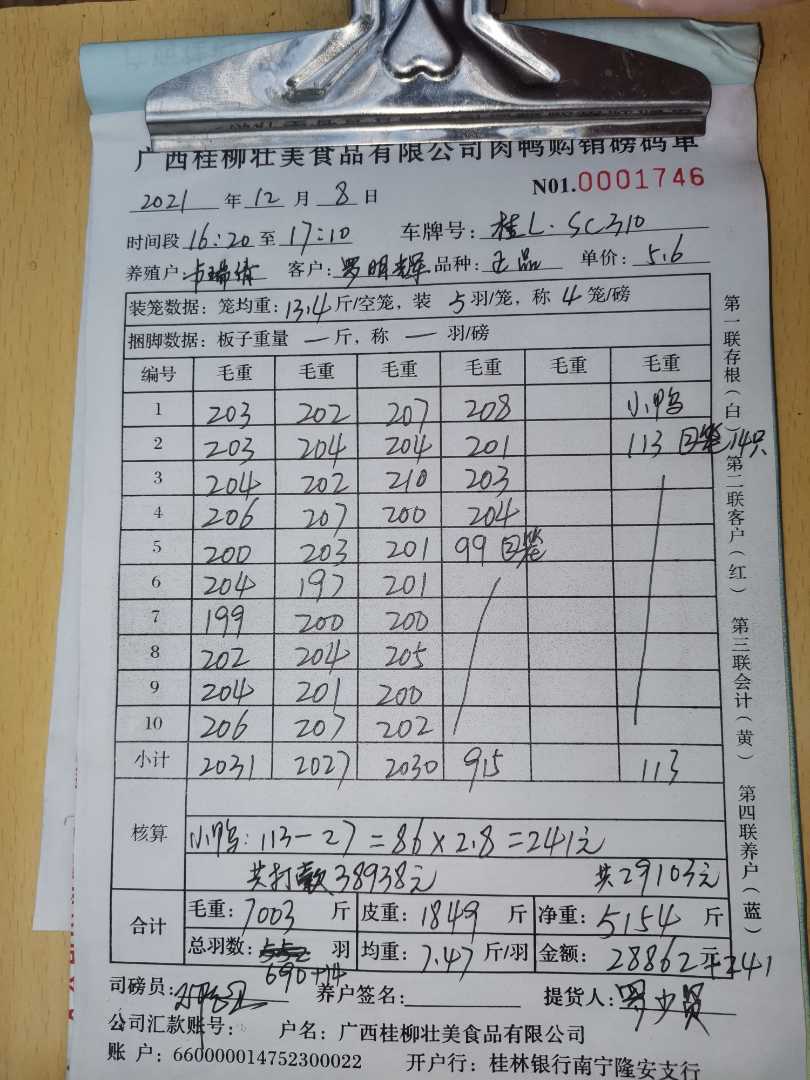 广西桂柳壮美食品有限公司肉鸭购销磅码单
2021 年 12 月 8 日 N01.0001746
时间段 16:20 至 17:10 车牌号: 桂L·SC310
养殖户: 客户: 罗明辉 品种: 正品 单价: 5.6
装笼数据: 笼均重: 13.4 斤/空笼, 装 5 羽/笼, 称 4 笼/磅
捆脚数据: 板子重量 — 斤, 称 — 羽/磅
编号 毛重 毛重 毛重 毛重 毛重 毛重
1 203 202 207 208 小鸭
2 203 204 204 201 113 回笼14只
3 204 202 210 203
4 206 207 200 204
5 200 203 201 99 回笼
6 204 197 201
7 199 200 200
8 202 204 205
9 204 201 200
10 206 207 202
小计 2031 2027 2030 915 113
核算
小鸭: 113-27=86×2.8=241元
共打款38938元 共29103元
合计 毛重: 7003 斤 皮重: 1849 斤 净重: 5154 斤
总羽数: 羽 均重: 7.47 斤/羽 金额: 28862 241
690+14
司磅员: 养户签名: 提货人: 罗少贤
公司汇款账号: 户名: 广西桂柳壮美食品有限公司
账 户: 660000014752300022 开户行: 桂林银行南宁隆安支行
第一联存根(白) 第二联客户(红) 第三联会计(黄) 第四联养户(蓝)